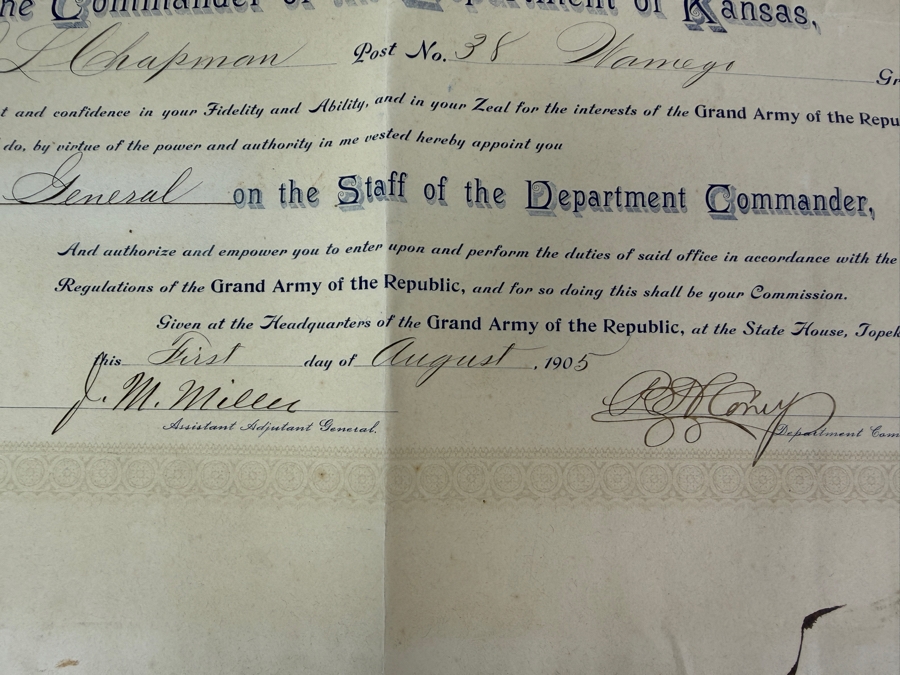 he Commander of the Department of Kansas,
L Chapman Post No. 38 Wamego Gr
t and confidence in your Fidelity and Ability, and in your Zeal for the interests of the Grand Army of the Repu
do, by virtue of the power and authority in me vested hereby appoint you
General on the Staff of the Department Commander,
And authorize and empower you to enter upon and perform the duties of said office in accordance with the
Regulations of the Grand Army of the Republic, and for so doing this shall be your Commission.
Given at the Headquarters of the Grand Army of the Republic, at the State House, Topek
this First day of August, 1905
J. M. Miller
Assistant Adjutant General.
Coney
Department Com